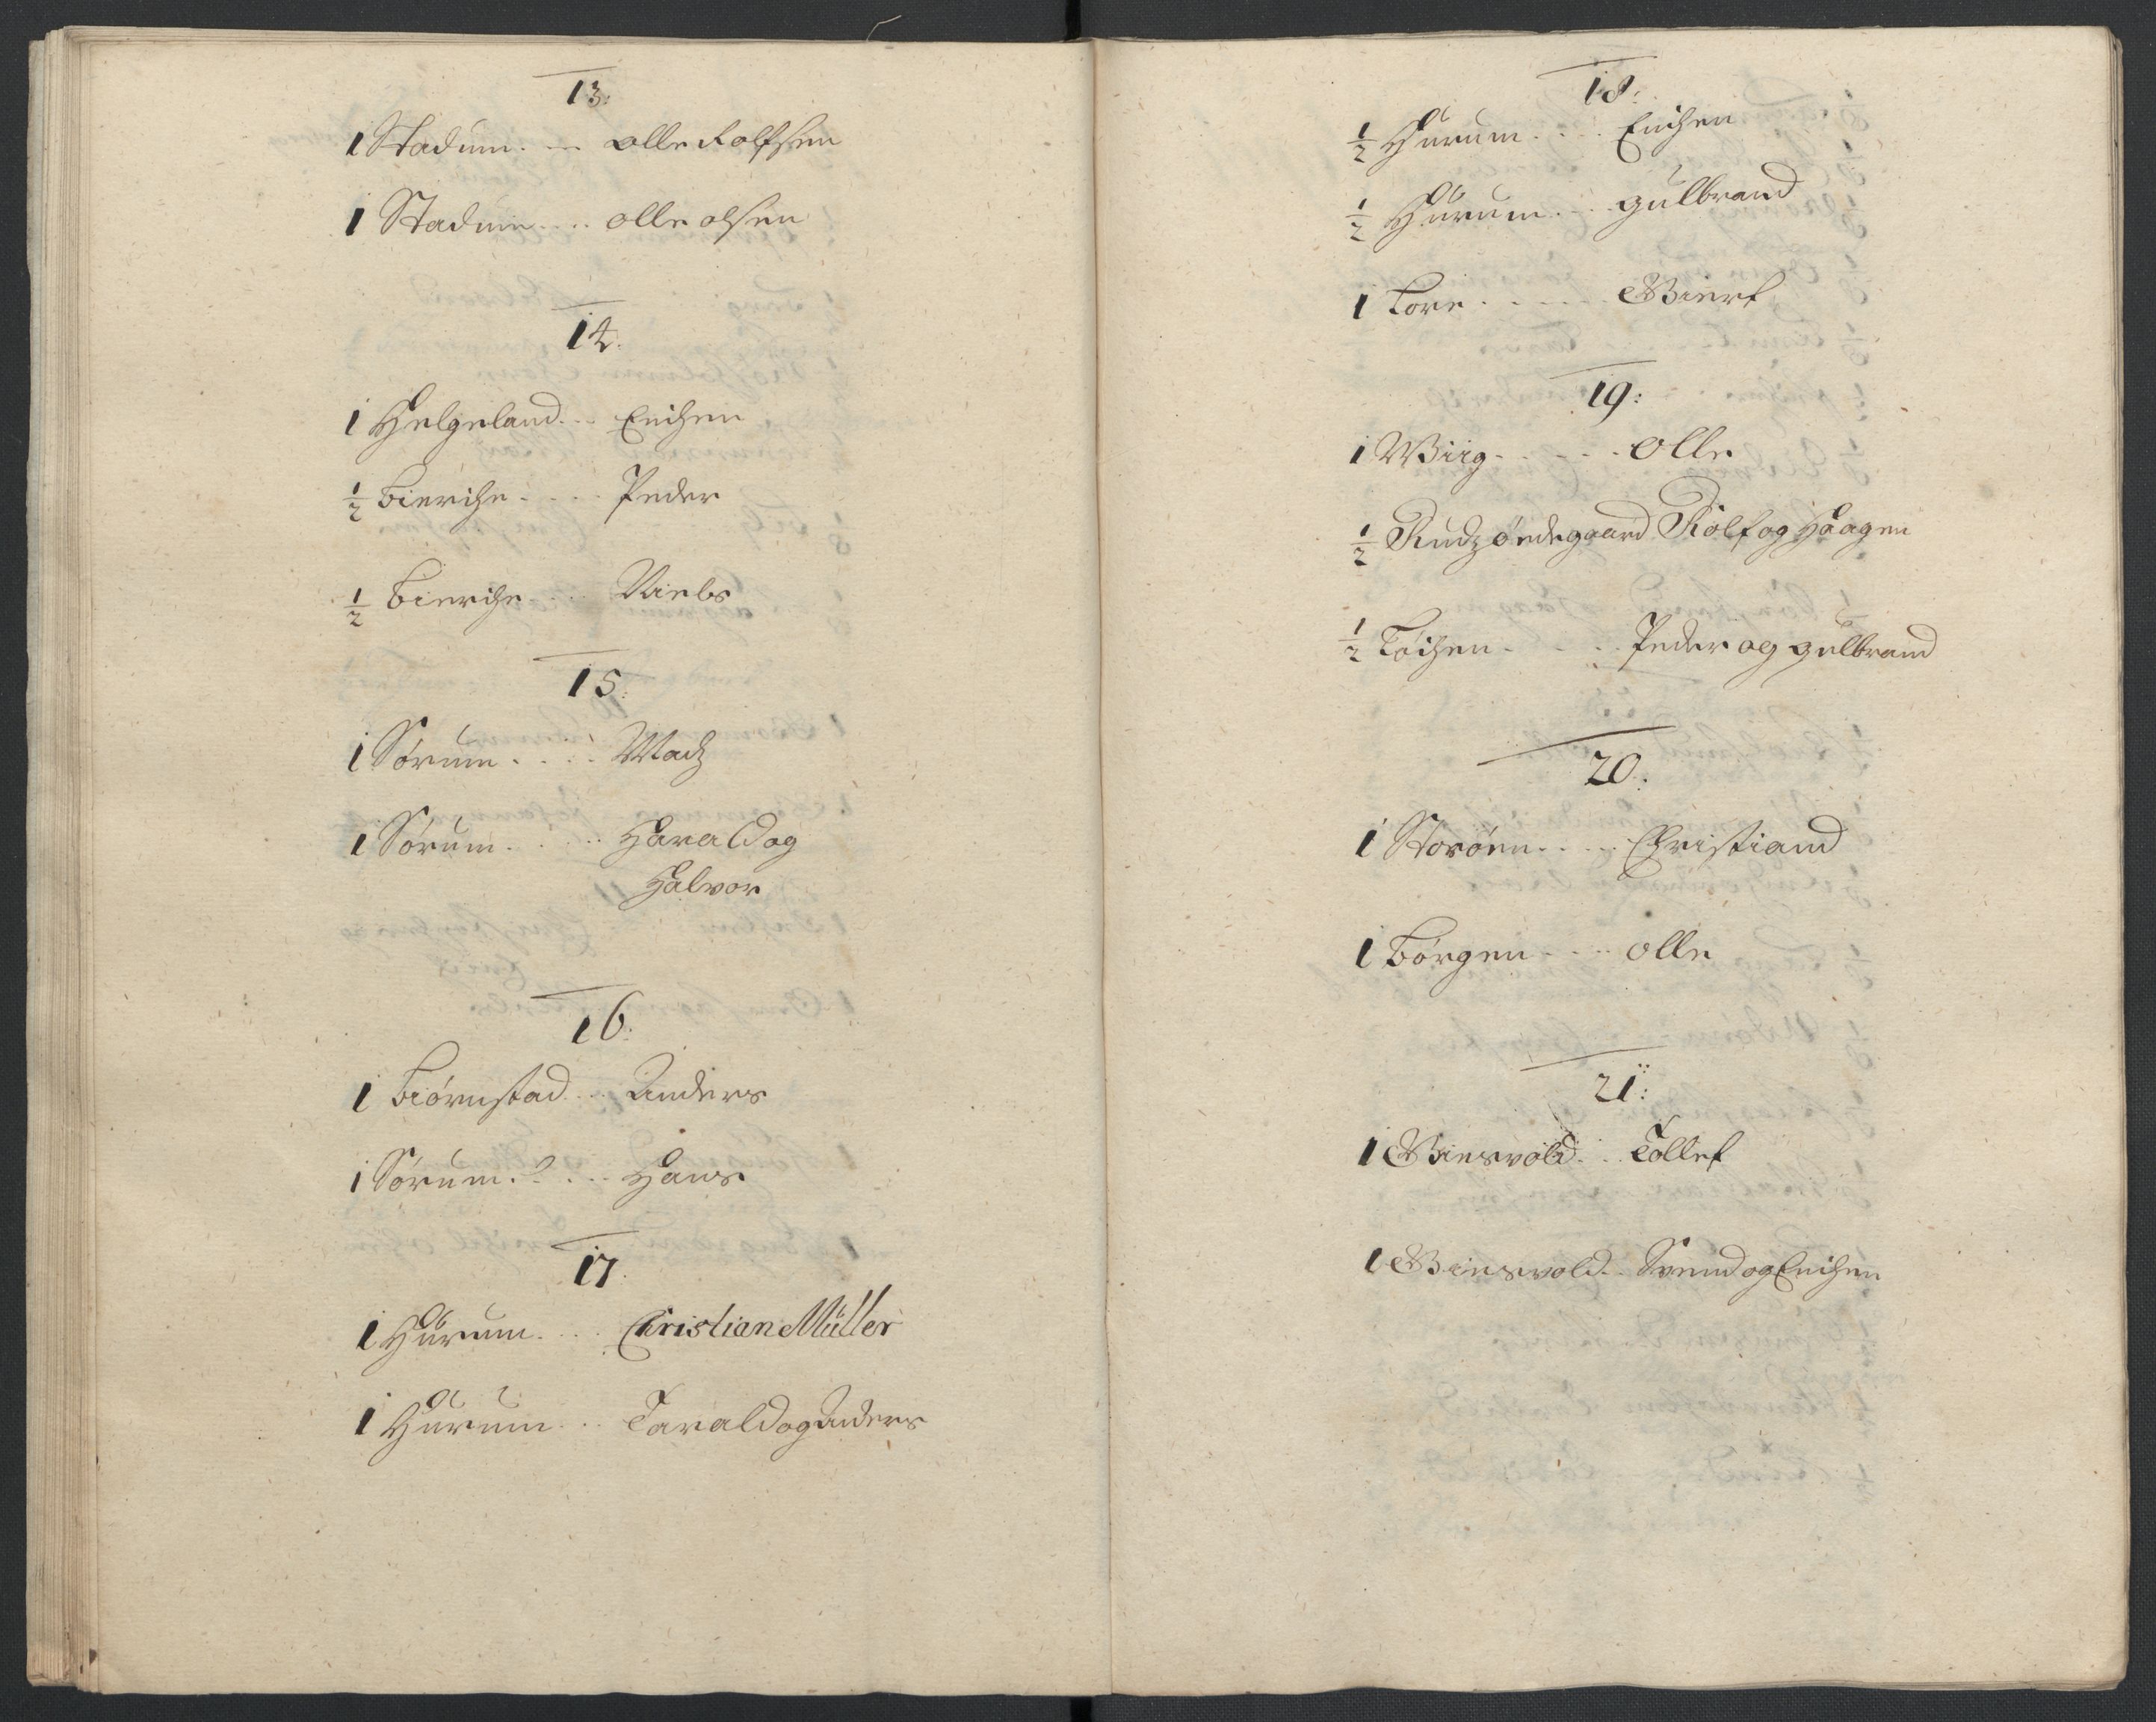 13:
1 Stadum . . . Olle Rolfsen
1 Stadum . . . . Olle olsen
14.
1 Helgeland . . . Erichen
1/2 Bierche . . . . Peder
1/2 Bierche . . . . Niels
15.
1 Sørum . . . . Madz
1 Sørum . . . . Harald og
Halvor
16.
1 Biørnstad . . . Anders
1 Sørum . . . . Hans
17.
1 Hurum . . . . Christian Müller
1 Hurum . . . Tarald og Anders
18:
1/2 Hurum . . . . Erichen
1/2 Hurum . . . gulbrand
1 Tore . . . . .
19:
1 Wiig . . . . . Olle
1/2 Rudz ødegaard Rolf og Haagen
1/2 Løchen . . . . Peder og gulbrand
20:
1 Storøen . . . . Christiand
1 Børgen . . . . Olle
21:
1 Giesvold . . . Tollef
1 Giesvold . . Svend og Erichen